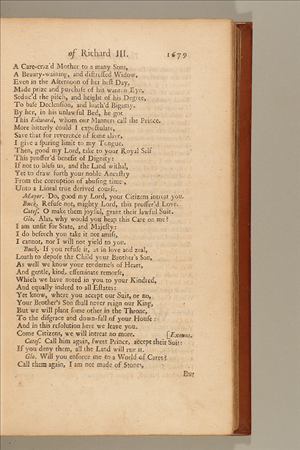 of Richard III. 1679
A Care-craz'd Mother to a many Sons,
A Beauty-waining, and distressed Widow,
Even in the Afternoon of her best Day,
Made prize and purchase of his wanton Eye,
Seduc'd the pitch, and height of his Degree,
To base Declension, and loath'd Bigamy.
By her, in his unlawful Bed, he got
This Edward, whom our Manners call the Prince.
More bitterly could I expostulate,
Save that for reverence of some alive,
I give a sparing limit to my Tongue.
Then, good my Lord, take to your Royal Self
This proffer'd benefit of Dignity:
If not to bless us, and the Land withal,
Yet to draw forth your noble Ancestry
From the corruption of abusing time,
Unto a Lineal true derived course.
Mayor. Do, good my Lord, your Citizens intreat you.
Buck. Refuse not, mighty Lord, this proffer'd Love.
Catef. O make them joyful, grant their lawful Suit.
Glo. Alas, why would you heap this Care on me?
I am unfit for State, and Majesty:
I do beseech you take it not amiss,
I cannot, nor I will not yield to you.
Buck. If you refuse it, as in love and zeal,
Loath to depose the Child your Brother's Son,
As well we know your tenderness of Heart,
And gentle, kind, effeminate remorse,
Which we have noted in you to your Kindred,
And equally indeed to all Estates:
Yet know, where you accept our Suit, or no,
Your Brother's Son shall never reign our King,
But we will plant some other in the Throne,
To the disgrace and down-fall of your House:
And in this resolution here we leave you.
Come Citizens, we will intreat no more. [Exeunt.
Catef. Call him again, sweet Prince, accept their Suit:
If you deny them, all the Land will rue it.
Glo. Will you enforce me to a World of Cares?
Call them again, I am not made of Stones,
But